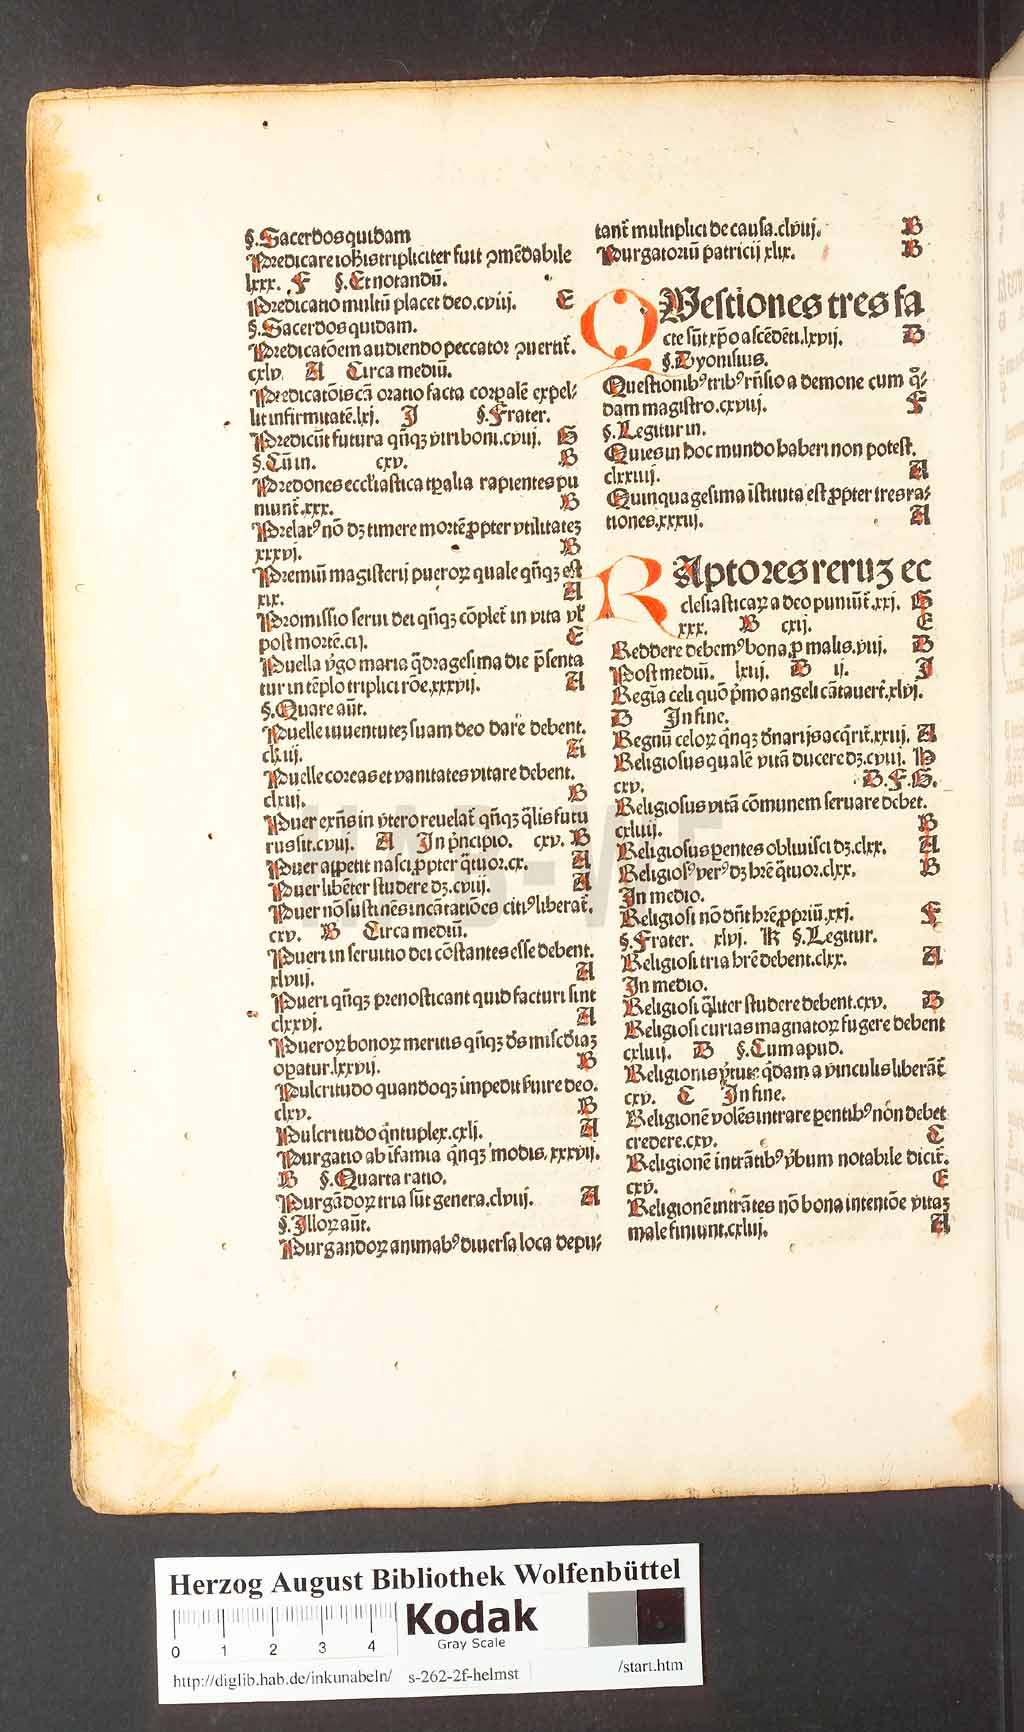 §.Sacerdos quidam
Predicare iohānis tripliciter fuit ꝯmēdabile
lxxx. F §.Et notandū.
Predicatio multū placet deo.cviij. E
§.Sacerdos quidam.
Predicatōem audiendo peccator ꝯuertit̄.
cxlv. A Circa mediū.
oratio facta corꝑalē expel⸗
lit infirmitatē.lxj. J §.Frater.
Predicūt futura qn̄qꝫ viri boni.cviij. G
§.Cū in. cxv. B
Predones eccl̄iastica tꝑalia rapientes pu
niunt̄.xxx. B
Prelatꝰ nō dꝫ timere mortē ꝓpter vtilitateꝫ
xxxvj. B
Premiū magisterij pueroꝝ quale qn̄qꝫ est
xix. A
Promissio serui dei qn̄qꝫ cōplet̄ in vita vl̓
post mortē.cij. E
Puella v̓go maria q̄dragesima die p̄senta
tur in tēplo triplici rōe.xxxvij. A
§.Quare aūt.
Puelle iuuentuteꝫ suam deo dare debent.
clxiij. A
Puelle coreas et vanitates vitare debent.
clxiij. B
Puer exn̄s in vtero reuelat̄ qn̄qꝫ q̄lis futu
rus sit.cviij. A In pͥncipio. cxv. B
Puer appetit nasci ꝓpter q̄tuor.cx. A
Puer libēter studere dꝫ.cviij. A
Puer nō sustinēs incātatiōes citiꝰ liberat̄.
cxv. B Circa mediū.
Pueri in seruitio dei cōstantes esse debent.
xlviij. A
Pueri qn̄qꝫ prenosticant quid facturi sint
clxxvj. A
Pueroꝝ bonoꝝ meritis qn̄qꝫ ds̄ mīscd̓iaꝫ
opatur.lxxvij. B
Pulcritudo quandoqꝫ impedit f̓uire deo.
clxv. B
Pulcritudo q̄ntuplex.cxlj. A
Purgatio ab īfamia qn̄qꝫ modis.xxxvij.
B §.Quarta ratio.
Purgādoꝝ tria sūt genera.clviij. A
§.Illoꝝ aūt.
Purgandoꝝ animabꝰ diuersa loca depu⸗
tant̄ multiplici de causa.clviij. B
Purgatoriū patricij xlix. B
QUestiones tres fa
cte sūt xp̄o ascēdēti.lxvij. B
§.Dyonisius.
Questionibꝰ tribꝰ rn̄sio a demone cum qͦ⸗
dam magistro.cxviij. F
§.Legitur in.
Quies in hoc mundo haberi non potest.
clxxiiij. A
Quinquagesima īstituta est ꝓpter tres ra⸗
tiones.xxxiij. A
RAptores reruꝫ ec
clesiasticaꝝ a deo puniūt̄.xxj. G
xxx. B cxij. E
Reddere debemꝰ bona ꝓ malis.viij. B
Post mediū. lxiij. B ij. J
Regīa celi quō pͥmo angeli cātauer̄t.xlvj.
D In fine.
Regnū celoꝝ qn̄qꝫ dn̄arijs acqͥrit̄.xxiij. A
Religiosus qualē vitā ducere dꝫ.cviij. H
cxv. D.F.G.
Religiosus vitā cōmunem seruare debet.
cxliij. B
Religiosus ꝑentes obliuisci dꝫ.clxx. A
Religiosꝰ verꝰ dꝫ hr̄e q̄tuor.clxx. B
In medio.
Religiosi nō dn̄t hr̄e ꝓpriū.xxj. F
§.Frater. xlvj. K §.Legitur.
Religiosi tria hr̄e debent.clxx. A
In medio.
Religiosi q̄liter studere debent.cxv. D
Religiosi curias magnatoꝝ fugere debent
cxliij. B §.Cum apud.
Religionis v̓tute q̄dam a vinculis liberāt̄
cxv. C In fine.
Religionē volēs intrare ꝑentibꝰ non debet
credere.cxv. C
Religionē intrātibꝰ v̓bum notabile dicit̄.
cxv. E
Religionē intrātes nō bona intentōe vitaꝫ
male finiunt.cxliij. A
HAB-WF
Herzog August Bibliothek Wolfenbüttel
0 1 2 3 4
Kodak
Gray Scale
http://diglib.hab.de/inkunabeln/ s-262-2f-helmst /start.htm